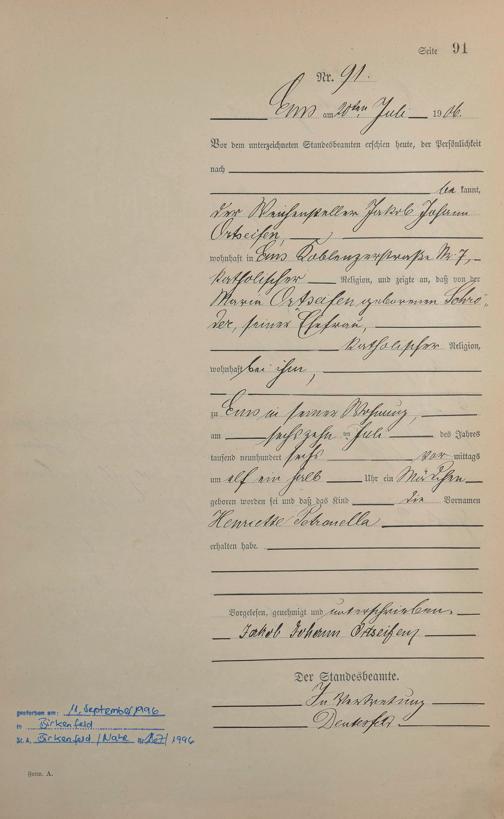 Seite 91
Nr. 91.
Ems am 20ten Juli 1906.
Vor dem unterzeichneten Standesbeamten erschien heute, der Persönlichkeit
nach
be kannt,
der Weichensteller Jakob Johann
Ortseifen,
wohnhaft in Ems Koblenzerstraße Nr. 7,
katholischer Religion, und zeigte an, daß von der
Maria Ortseifen geborenen Schrö-
der, seiner Ehefrau,
katholischer Religion,
wohnhaft bei ihm,
zu Ems in seiner Wohnung,
am sechszehn ten Juli des Jahres
tausend neunhundert sechs vor mittags
um elf ein halb Uhr ein Mädchen
geboren worden sei und daß das Kind die Vornamen
Henriette Petronella
erhalten habe.
Vorgelesen, genehmigt und unterschrieben.
Jakob Johann Ortseifen
Der Standesbeamte.
In Vertretung
gestorben am: 11. September 1996
in Birkenfeld
St. A. Birkenfeld / Nahe Nr. /1996
Form. A.